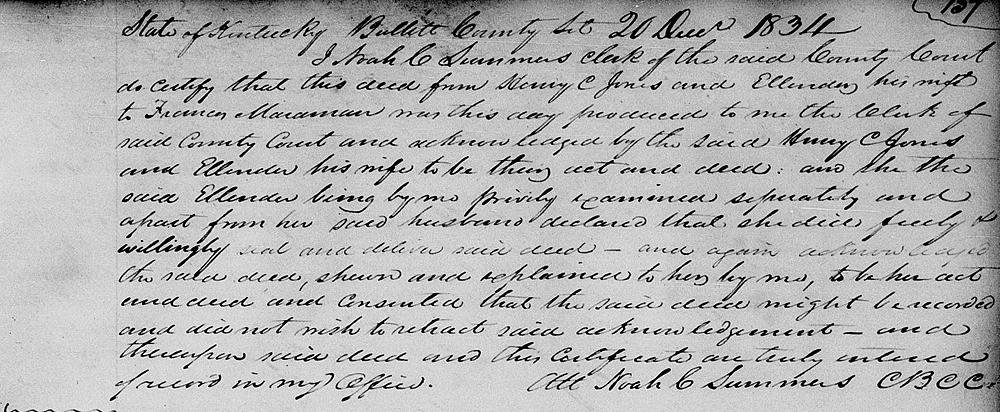 137
State of Kentucky Bullitt County Sct 20 Decr 1834
I Noah C Summers clerk of the said County Court
do certify that this deed from Henry C Jones and Ellender his wife
to Francis Maraman was this day produced to me the Clerk of
said County Court and acknowledged by the said Henry C Jones
and Ellender his wife to be their act and deed : and she the
said Ellender being by me privily examined seperately and
apart from her said husband declared that she did freely &
willingly seal and deliver said deed — and again acknowledged
the said deed, shewn and explained to her by me, to be her act
and deed and consented that the said deed might be recorded
and did not wish to retract said acknowledgement — and
thereupon said deed and this certificate are truly entered
of record in my office. Att Noah C Summers CBCC